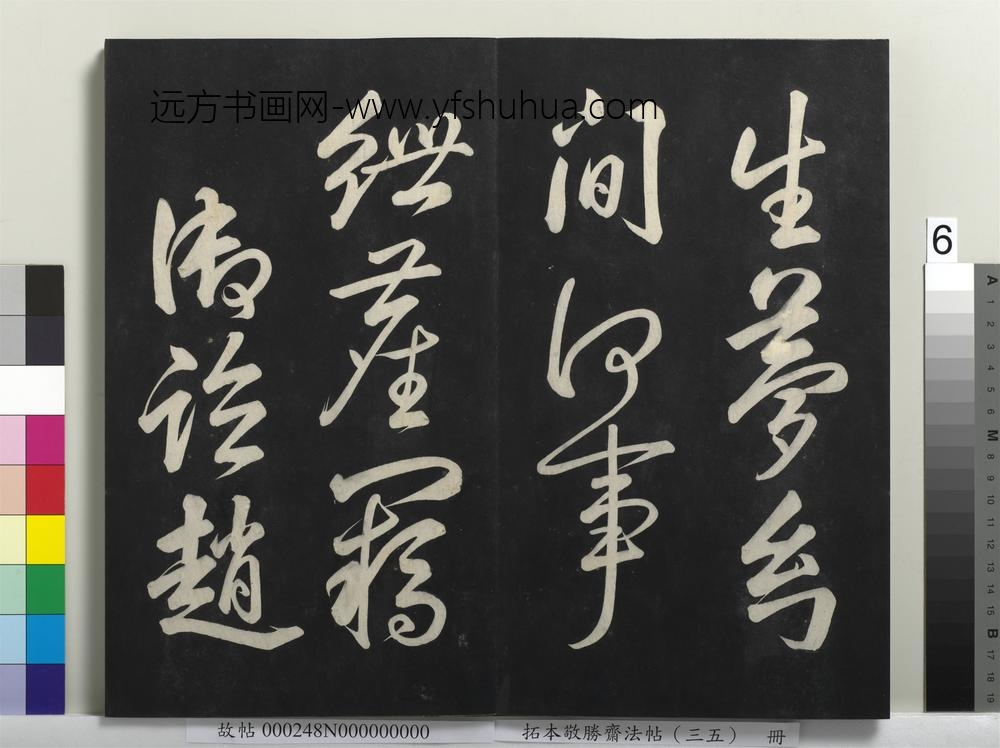 远方书画网-www.yfshuhua.com
生夢幻
間何事
紲塵羈
趙
6
A 1 2 3 4 5 6 M 8 9 10 11 12 13 14 15 B 17 18 19
故帖 000248N000000000
拓本敬勝齋法帖(三五) 冊